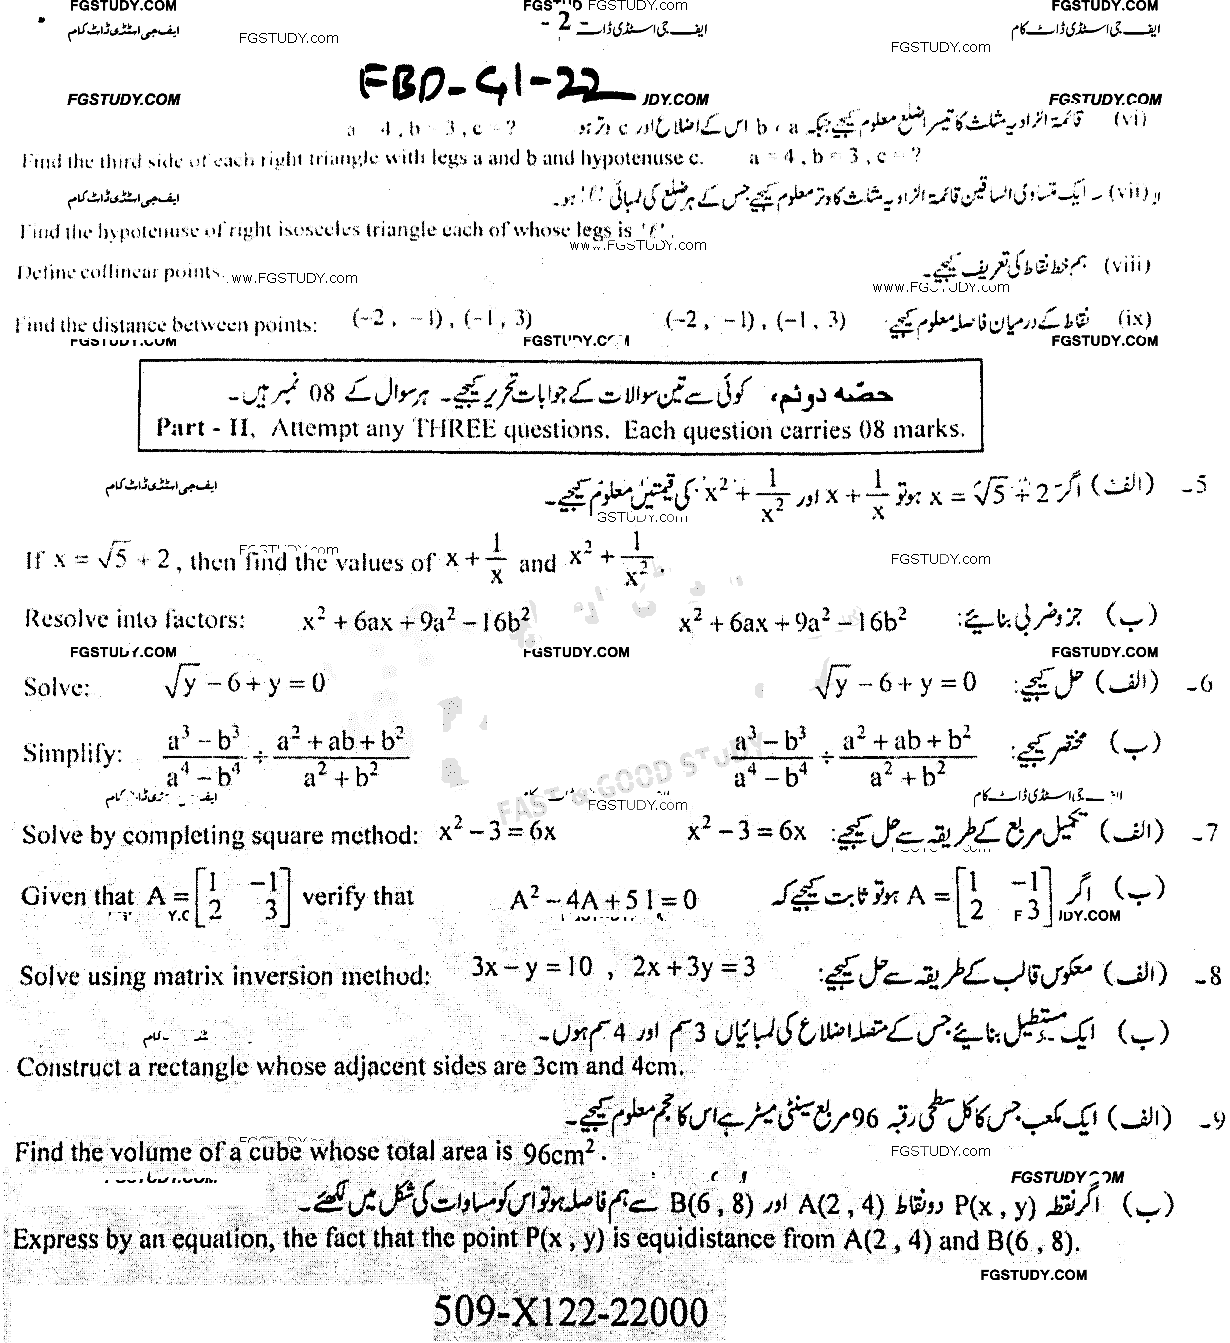 FGSTUDY.COM FGSTUDY.COM FGSTUDY.com FGSTUDY.COM
ایف جی اسٹڈی ڈاٹ کام - 2 - ایف جی اسٹڈی ڈاٹ ایف جی اسٹڈی ڈاٹ کام
FGSTUDY.com FGSTUDY.com
FBD-G1-22
FGSTUDY.COM JDY.COM FGSTUDY.COM
(vi) قائمۃ الزاویہ مثلث کا تیسرا ضلع معلوم کیجیے جبکہ a ، b اس کے اضلاع اور c وتر ہو a = 4 , b = 3 , c = ?
Find the third side of each right triangle with legs a and b and hypotenuse c. a = 4 , b = 3 , c = ?
(vii) ایک متساوی الساقین قائمۃ الزاویہ مثلث کا وتر معلوم کیجیے جس کے ہر ضلع کی لمبائی 'ℓ' ہو۔
ایف جی اسٹڈی ڈاٹ کام
Find the hypotenuse of right isosceles triangle each of whose legs is 'ℓ'.
www.FGSTUDY.com
Define collinear points. (viii) ہم خط نقاط کی تعریف کیجیے۔
www.FGSTUDY.com www.FGSTUDY.com
Find the distance between points: (-2 , -1) , (-1 , 3) (-2 , -1) , (-1 , 3) نقاط کے درمیان فاصلہ معلوم کیجیے (ix)
FGSTUDY.COM FGSTUDY.COM FGSTUDY.COM
حصّہ دوئم، کوئی سے تین سوالات کے جوابات تحریر کیجیے۔ ہر سوال کے 08 نمبر ہیں۔
Part - II, Attempt any THREE questions. Each question carries 08 marks.
5۔ (الف) اگر x = √5 + 2 ہو تو x + 1/x اور x² + 1/x² کی قیمتیں معلوم کیجیے۔
ایف جی اسٹڈی ڈاٹ کام
GSTUDY.com
If x = √5 + 2 , then find the values of x + 1/x and x² + 1/x² .
FGSTUDY.com FGSTUDY.com
Resolve into factors: x² + 6ax + 9a² − 16b² x² + 6ax + 9a² − 16b² (ب) جزو ضربی بنائیے:
FGSTUDY.COM FGSTUDY.COM FGSTUDY.COM
Solve: √y − 6 + y = 0 √y − 6 + y = 0 6۔ (الف) حل کیجیے:
Simplify: (a³ − b³)/(a⁴ − b⁴) ÷ (a² + ab + b²)/(a² + b²) (a³ − b³)/(a⁴ − b⁴) ÷ (a² + ab + b²)/(a² + b²) (ب) مختصر کیجیے:
FAST & GOOD STUDY
FGSTUDY.com
Solve by completing square method: x² − 3 = 6x x² − 3 = 6x 7۔ (الف) تکمیل مربع کے طریقہ سے حل کیجیے:
Given that A = [1 −1; 2 3] verify that A² − 4A + 5 I = 0 (ب) اگر A = [1 −1; 2 3] ہو تو ثابت کیجیے کہ
JDY.COM
Solve using matrix inversion method: 3x − y = 10 , 2x + 3y = 3 8۔ (الف) معکوس قالب کے طریقہ سے حل کیجیے:
(ب) ایک مستطیل بنائیے جس کے متصلہ اضلاع کی لمبائیاں 3 سم اور 4 سم ہوں۔
Construct a rectangle whose adjacent sides are 3cm and 4cm.
9۔ (الف) ایک مکعب جس کا کل سطحی رقبہ 96 مربع سینٹی میٹر ہے اس کا حجم معلوم کیجیے۔
Find the volume of a cube whose total area is 96cm² .
FGSTUDY.com
FGSTUDY.COM
(ب) اگر نقطہ P(x , y) دو نقاط A(2 , 4) اور B(6 , 8) سے ہم فاصلہ ہو تو اس کو مساوات کی شکل میں لکھئے۔
Express by an equation, the fact that the point P(x , y) is equidistance from A(2 , 4) and B(6 , 8).
FGSTUDY.COM
509-X122-22000